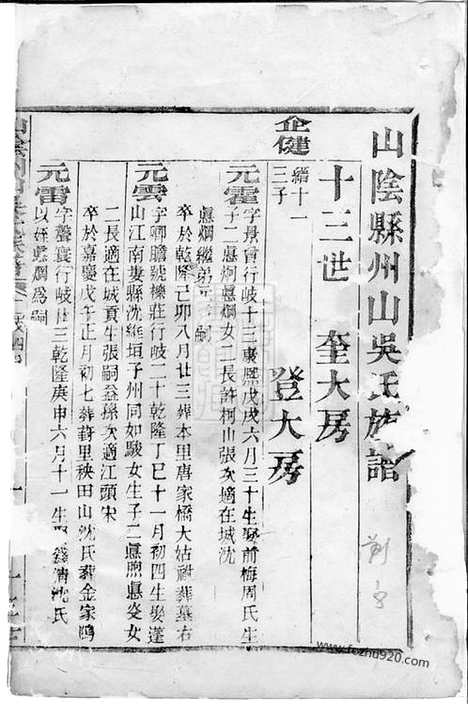 山陰縣州山吳氏族譜
十三世 奎大房
登大房
企健
緒十一
三子
元霍
字景會行岐十三康熙戊戌六月三十生娶前梅周氏生
子二惪炯惪爛女二長許柯山張次適在城沈
卒於乾隆己卯八月廿三葬本里唐家橋大姑祖葬墓右
惪爛繼弟 嗣
元雲
字卿瞻號櫟莊行岐二十乾隆丁巳十一月初四生娶蓬
山江南婁縣沈維垣子州同如駿女生子二惪煦惪炎女
二長適在城貢生張嗣益孫次適江頭宋
卒於嘉慶戊午正月初七葬葑里秧田山沈氏葬金家隝
元雷
字聲寰行岐廿三乾隆庚申六月十一生 錢清沈氏
以姪惪爛爲嗣
www.fozhu920.com